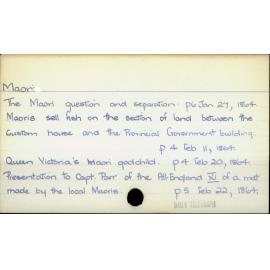 Maori
The Maori question and separation. p6 Jan 27, 1864.
Maoris sell fish on the section of land between the
Custom house and the Provincial Government building.
p 4 Feb 11, 1864.
Queen Victoria's Maori godchild. p 4 Feb 20, 1864.
Presentation to Capt. Parr of the All-England XI of a mat
made by the local Maoris. p 5 Feb 22, 1864.
DAILY TELEGRAPH